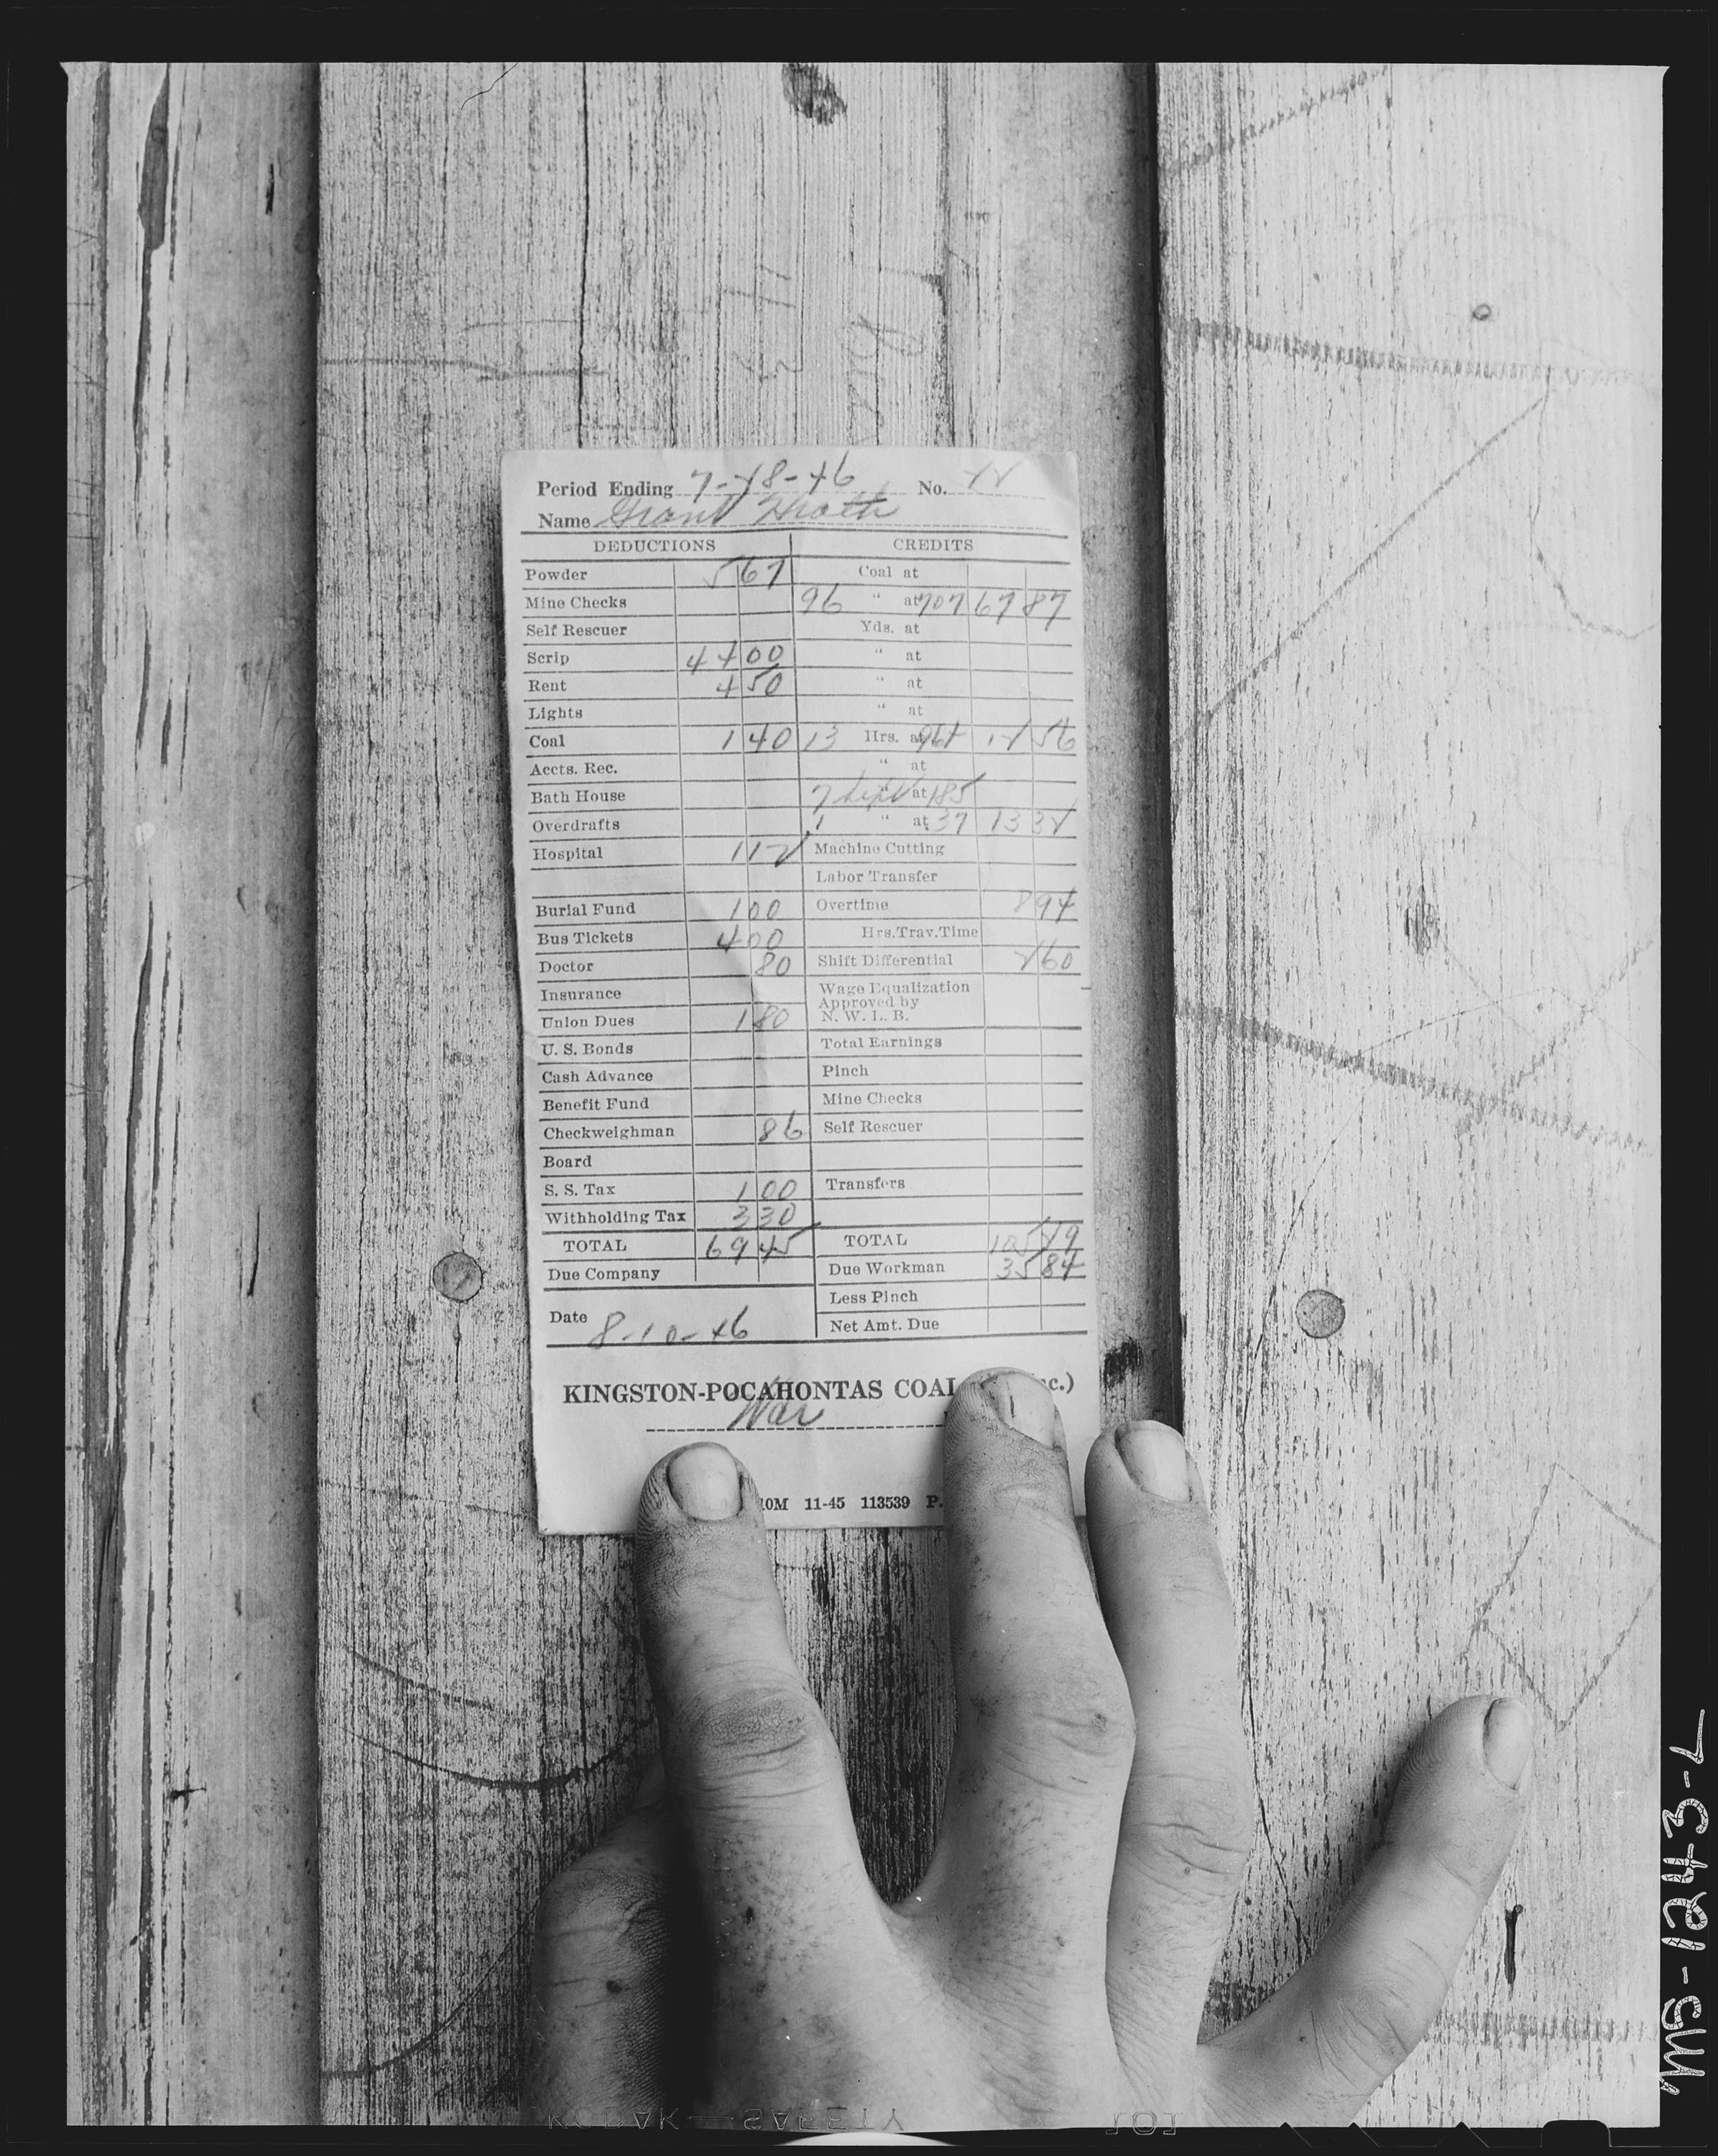 Period Ending 7-28-46 No. 22
Name Grant
DEDUCTIONS CREDITS
Powder 5 67 Coal at
Mine Checks 96 " at 707 67 87
Self Rescuer Yds. at
Scrip 44 00 " at
Rent 4 50 " at
Lights " at
Coal 1 40 13 Hrs. at 966 12 56
Accts. Rec. " at
Bath House 7 " at 185
Overdrafts 1 " at 37 13 32
Hospital 1 12 Machine Cutting
Labor Transfer
Burial Fund 1 00 Overtime 8 94
Bus Tickets 4 00 Hrs.Trav.Time
Doctor 80 Shift Differential 2 60
Insurance Wage Equalization
Approved by
Union Dues 1 80 N. W. L. B.
U. S. Bonds Total Earnings
Cash Advance Pinch
Benefit Fund Mine Checks
Checkweighman 86 Self Rescuer
Board
S. S. Tax 1 00 Transfers
Withholding Tax 3 30
TOTAL 69 45 TOTAL 105 29
Due Company Due Workman 35 84
Less Pinch
Date 8-10-46 Net Amt. Due
KINGSTON-POCAHONTAS COAL
War
10M 11-45 113539 P.
KODAK SAFETY 101
MS-1243-7